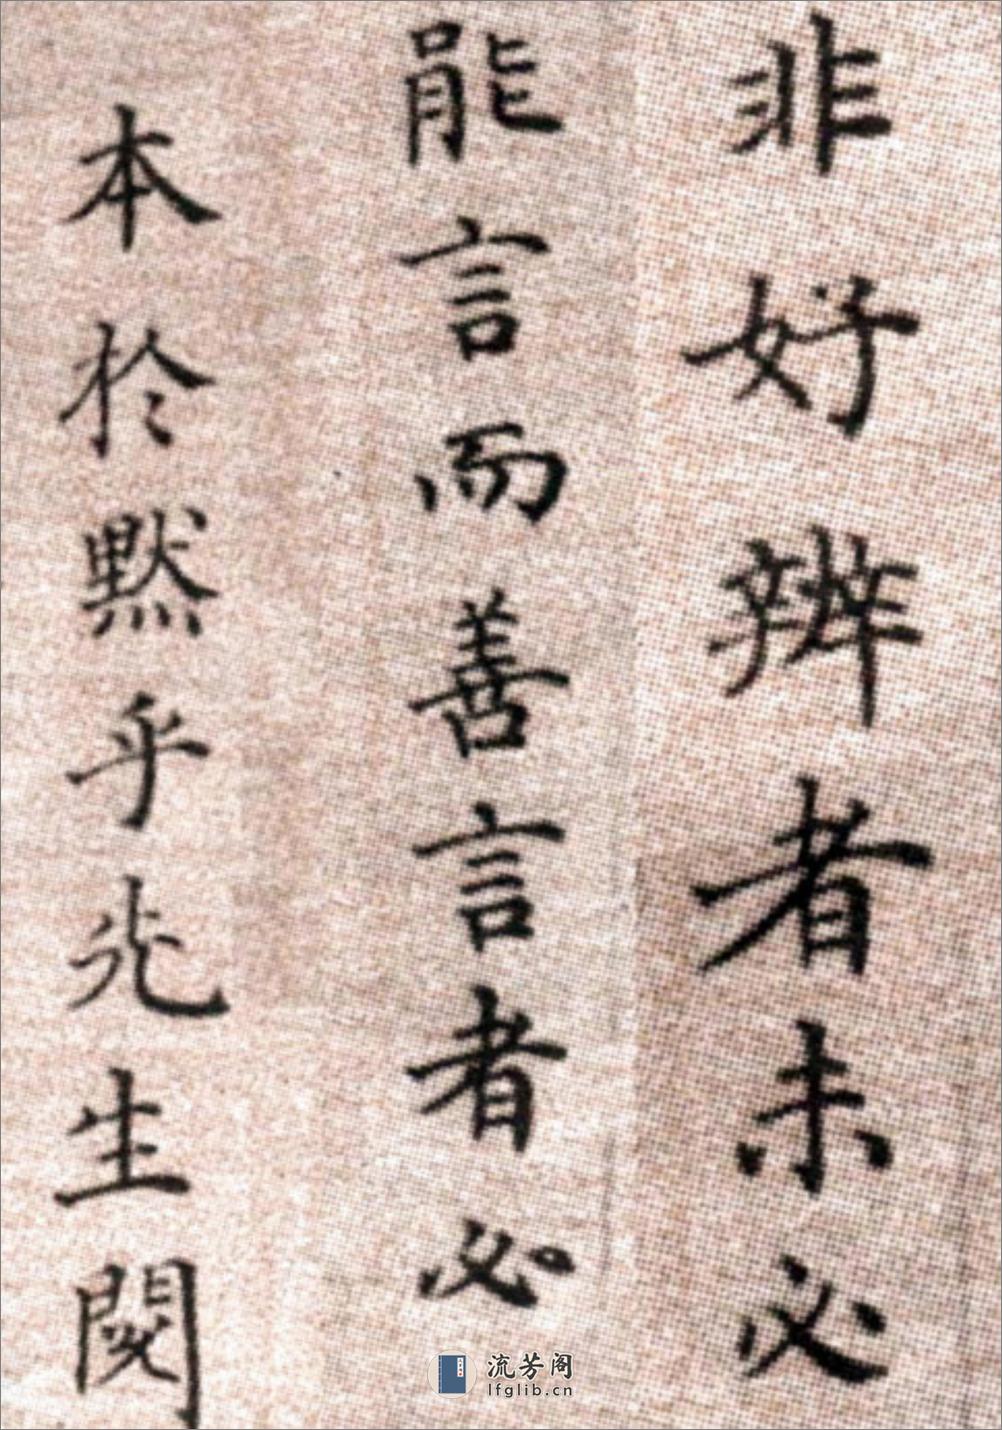 非好辨者未必
能言而善言者必
本於默乎先生閔
流芳阁
lfglib.cn